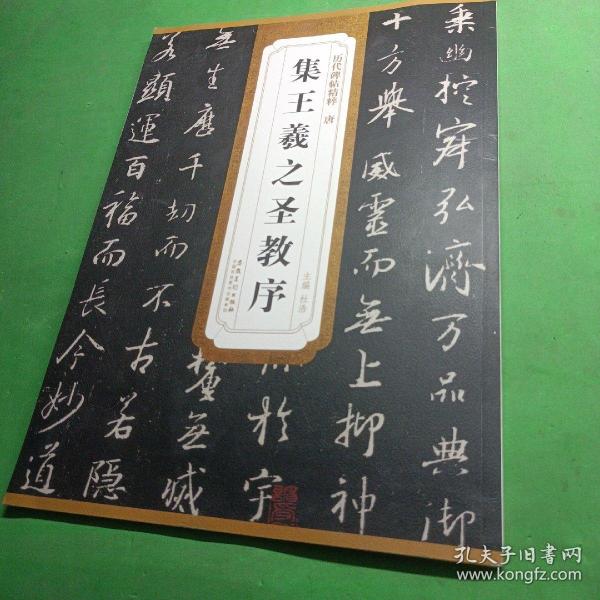 历代碑帖精粹 唐
集王羲之圣教序
主编 杜浩
乘幽控寂弘济万品典御
十方举威灵而无上抑神
于宇
无生历千劫而不古
若隐
若显运百福而长今妙道
孔夫子旧书网
www.kongfz.com